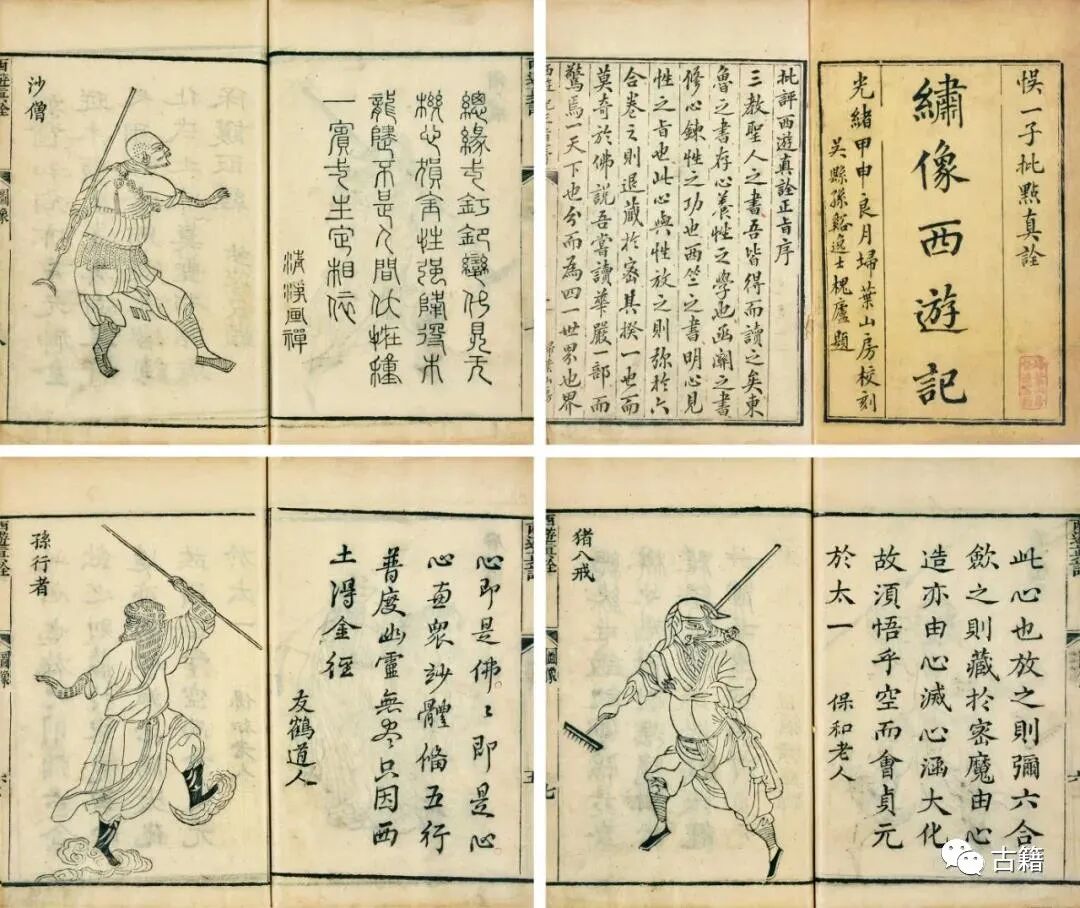 悞一子批點真詮
繡像西遊記
光緒甲申良月埽葉山房校刻
吳縣孫谿逸士槐廬題
批評西遊真詮正旨序
三教聖人之書吾皆得而讀之矣東
魯之書存心養性之學也函關之書
修心鍊性之功也西竺之書明心見
性之旨也此心與性放之則彌於六
合卷之則退藏於密其揆一也而
莫奇於佛說吾嘗讀華嚴一部而
驚焉一天下也分而為四一世界也界
機心損害性強降
龍隨不是人間
一實
主定相依
沙僧
圖像
此心也放之則彌六合
歛之則藏於密魔由心
造亦由心滅心涵大化
故須悟乎空而會貞元
於太一
保和老人
猪八戒
圖像
心即是佛〻即是心
心直眾妙體備五行
普度幽靈無尽只因西
土得金徑
友鶴道人
孫行者
圖像
古籍